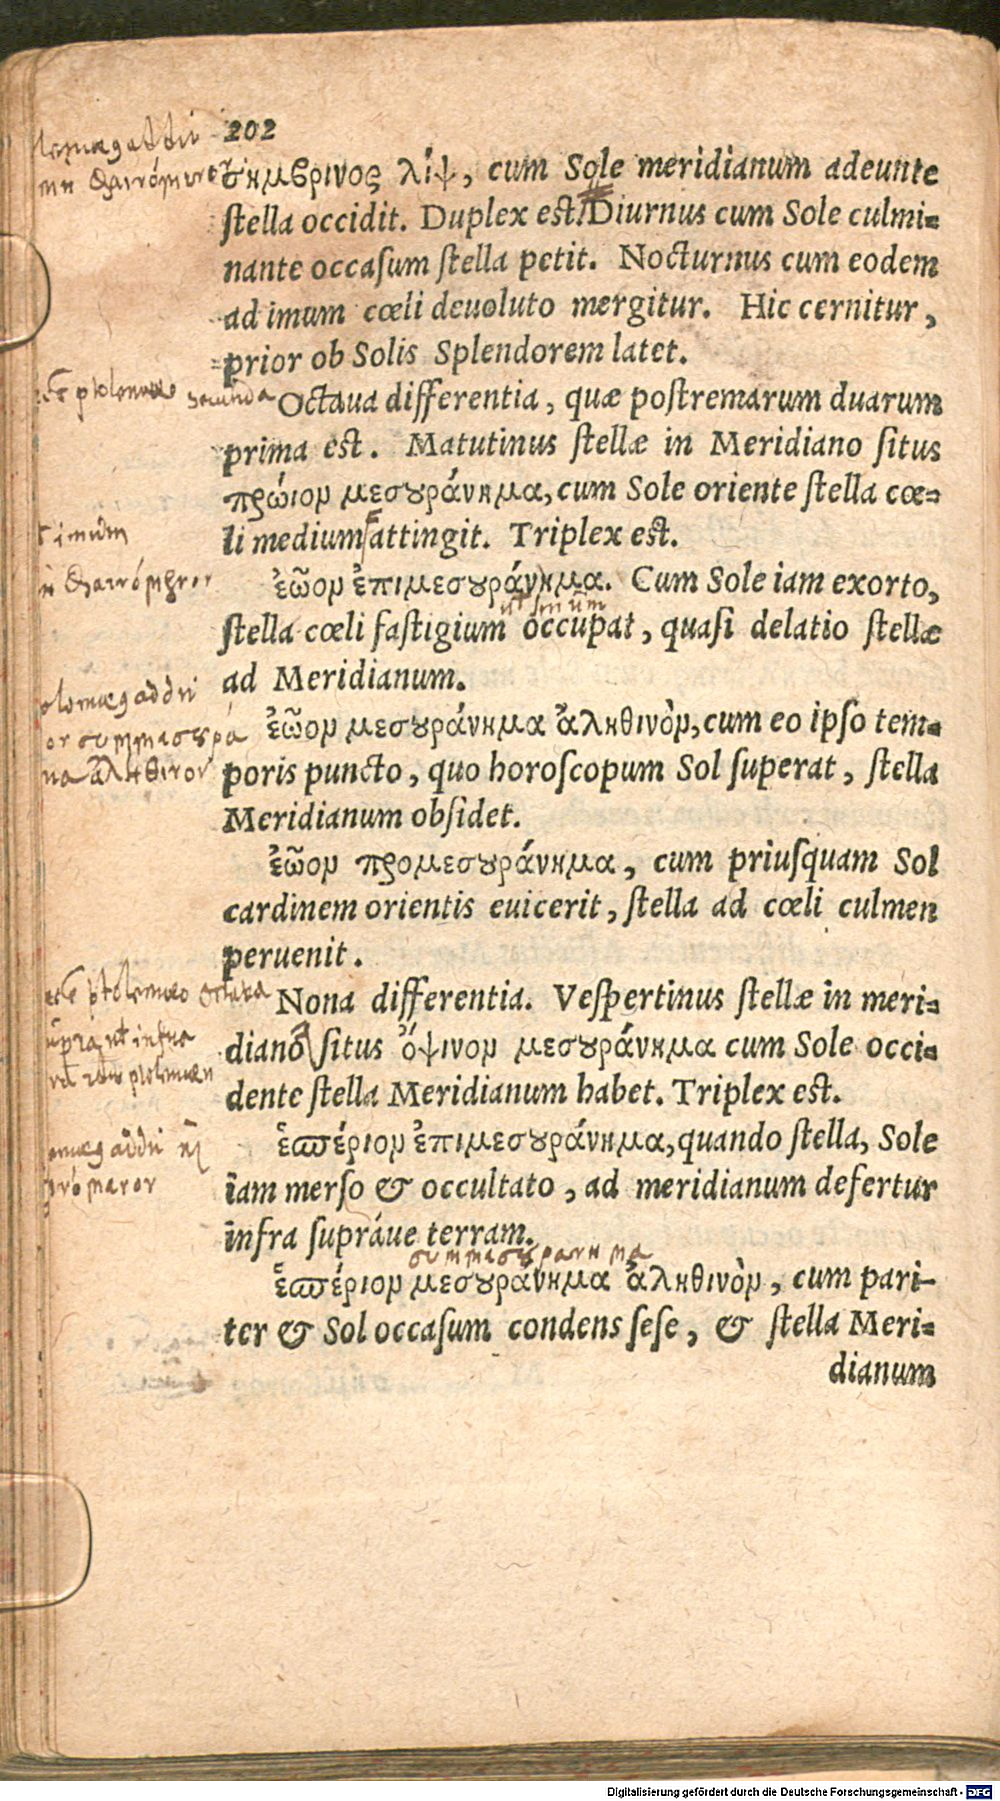 202
σημβρινος λίψ, cum Sole meridianum adeunte
stella occidit. Duplex est. Diurnus cum Sole culmi-
nante occasum stella petit. Nocturnus cum eodem
ad imum cœli deuoluto mergitur. Hic cernitur,
prior ob Solis Splendorem latet.
ptolemæo secunda
Octaua differentia, quæ postremarum duarum
prima est. Matutinus stellæ in Meridiano situs
πρώιον μεσουράνημα, cum Sole oriente stella cœ-
li medium attingit. Triplex est.
ἑῶον ἐπιμεσουράνημα. Cum Sole iam exorto,
stella cœli fastigium occupat, quasi delatio stellæ
ad Meridianum.
ἑῶον μεσουράνημα ἀληθινὸν, cum eo ipso tem-
poris puncto, quo horoscopum Sol superat, stella
Meridianum obsidet.
ἑῶον προμεσουράνημα, cum priusquam Sol
cardinem orientis euicerit, stella ad cœli culmen
peruenit.
ptolemæo octaua
Nona differentia. Vespertinus stellæ in meri-
diano situs ὄψινον μεσουράνημα cum Sole occi-
dente stella Meridianum habet. Triplex est.
ἑσπέριον ἐπιμεσουράνημα, quando stella, Sole
iam merso & occultato, ad meridianum defertur
infra supráue terram.
συμμεσουρανημα
ἑσπέριον μεσουράνημα ἀληθινὸν, cum pari-
ter & Sol occasum condens sese, & stella Meri-
dianum
Digitalisierung gefördert durch die Deutsche Forschungsgemeinschaft - DFG